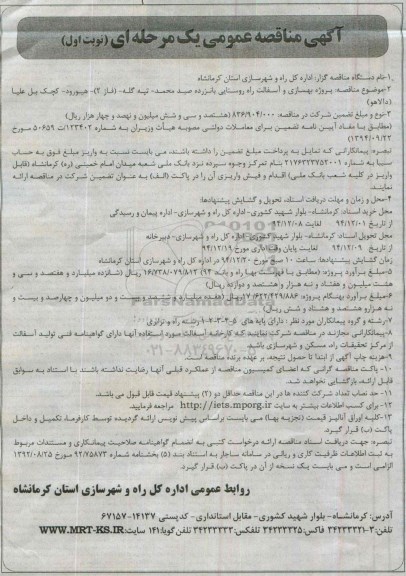 آگهی مناقصه عمومی یک مرحله ای (نوبت اول)
۱-نام دستگاه مناقصه گزار: اداره کل راه و شهرسازی استان کرمانشاه
۲-موضوع مناقصه: پروژه بهسازی و آسفالت راه روستایی بانزرده صید محمد- تپه گله- (فاز ۲)- هیورود- کچک بل علیا
(دالاهو)
۳-نوع و مبلغ تضمین شرکت در مناقصه: ۸۳۶/۹۰۴/۰۰۰ (هشتصد و سی و شش میلیون و نهصد و چهار هزار ریال)
(مطابق با مفاد آیین نامه تضمین برای معاملات دولتی مصوبه هیأت وزیران به شماره ۱۲۳۴۰۲/ت ۵۰۶۵۹ مورخ
۱۳۹۴/۰۹/۲۲)
تبصره: پیمانکارانی که تمایل به پرداخت مبلغ تضمین را داشته باشند، می بایست نسبت به واریز مبلغ فوق به حساب
سیبا به شماره ۲۱۷۶۴۳۲۳۷۵۲۰۰۱ بنام تمرکز وجوه سپرده نزد بانک ملی شعبه میدان امام خمینی (ره) کرمانشاه (قابل
واریز در کلیه شعب بانک ملی) اقدام و فیش واریزی آن را در پاکت (الف) به عنوان تضمین شرکت در مناقصه ارائه
نمایند.
۴-محل و زمان و مهلت دریافت اسناد، تحویل و گشایش پیشنهادها:
محل خرید اسناد: کرمانشاه- بلوار شهید کشوری- اداره کل راه و شهرسازی- اداره پیمان و رسیدگی
از تاریخ ۹۴/۱۲/۰۱ لغایت ۹۴/۱۲/۰۸
محل تحویل اسناد: کرمانشاه- بلوار شهید کشوری- اداره کل راه و شهرسازی- دبیرخانه
از تاریخ ۹۴/۱۲/۰۹ لغایت پایان وقت اداری مورخ ۹۴/۱۲/۱۹
زمان گشایش پیشنهادها: ساعت ۱۰ صبح مورخ ۹۴/۱۲/۲۰ در اداره کل راه و شهرسازی استان کرمانشاه
۵-مبلغ برآورد پروژه: (مطابق با فهرست بها راه و باند ۹۴) ۱۶/۷۳۸/۰۷۹/۸۱۲ ریال (شانزده میلیارد و هفتصد و سی و
هشت میلیون و هفتاد و نه هزار و هشتصد و دوازده ریال)
۶-مبلغ برآورد بهنگام پروژه: ۱۷/۶۲۲/۴۲۹/۸۸۶ ریال (هفده میلیارد و ششصد و بیست و دو میلیون و چهارصد و بیست و
نه هزار و هشتصد و هشتاد و شش ریال)
۷-رشته و گروه پیمانکاران مورد نظر: دارای پایه های ۵-۴-۳-۲-۱ رشته راه و ترابری
۸-پیمانکارانی مجازند در مناقصه شرکت نمایند که کارخانه آسفالت مورد استفاده آنها دارای گواهینامه فنی تولید آسفالت
از مرکز تحقیقات راه، مسکن و شهرسازی باشد.
۹-هزینه چاپ آگهی از ابتدا تا حصول نتیجه، بر عهده برنده مناقصه است.
۱۰- پاکت مناقصه گرانی که اعضای کمیسیون مناقصه از عملکرد قبلی آنها رضایت نداشته باشند با استناد به سوابق
قابل ارائه، بازگشایی نخواهد شد.
۱۱- حد نصاب تعداد شرکت کننده ها در این مناقصه حداقل دو (۲) پیشنهاد قیمت قابل قبول می باشد.
۱۲- برای کسب اطلاعات بیشتر به سایت http://iets.mporg.ir مراجعه فرمایید.
۱۳-کلیه اوراق آنالیز قیمت (تجزیه بها) می بایست براساس پیش نویس ارائه گردیده توسط کارفرما، تکمیل و داخل
پاکت (ب) قرار گیرد.
تبصره: جهت دریافت اسناد مناقصه ارائه درخواست کتبی به انضمام گواهینامه صلاحیت پیمانکاری و مستندات مربوط
به ثبت اطلاعات ظرفیت کاری و ریالی در سامانه ساجار به استناد بند (۵) بخشنامه شماره ۹۲/۷۵۸۷۳ مورخ ۱۳۹۲/۰۸/۲۵
الزامی است و می بایست یک نسخه از آن در پاکت (ب) قرار گیرد.
روابط عمومی اداره کل راه و شهرسازی استان کرمانشاه
آدرس: کرمانشاه- بلوار شهید کشوری- مقابل استانداری- کدپستی ۱۴۱۳۷-۶۷۱۵۷
تلفن: ۳-۳۴۲۳۳۲۲۱ فاکس: ۳۴۲۳۳۲۲۵ تلفکس: ۳۴۲۳۳۲۳۳ تلفن گویا: ۱۴۱ سایت: WWW.MRT-KS.IR